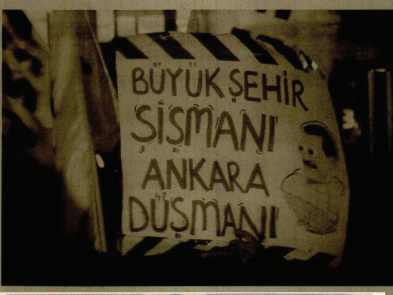 BÜYÜKŞEHİR
ŞİŞMANI
ANKARA
DÜŞMANI